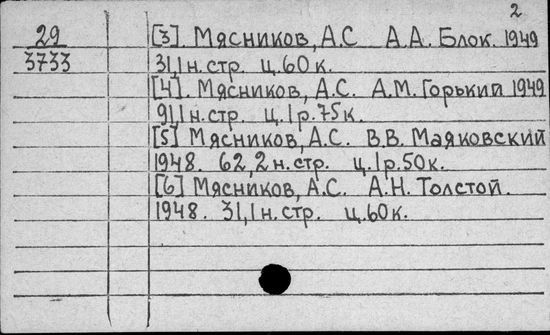 2
29
3733
[3]. Мясников, А.С А.А. Блок. 1949
31 1 н. стр. ц. 60 к.
[4]. Мясников, А.С. А.М. Горький 1949
91 1 н. стр. ц. 1 р. 75 к.
[5] Мясников, А.С. В.В. Маяковский
1948. 62, 2 н. стр. ц. 1 р. 50 к.
[6] Мясников, А.С. А.Н. Толстой.
1948. 31, 1 н. стр. ц. 60 к.